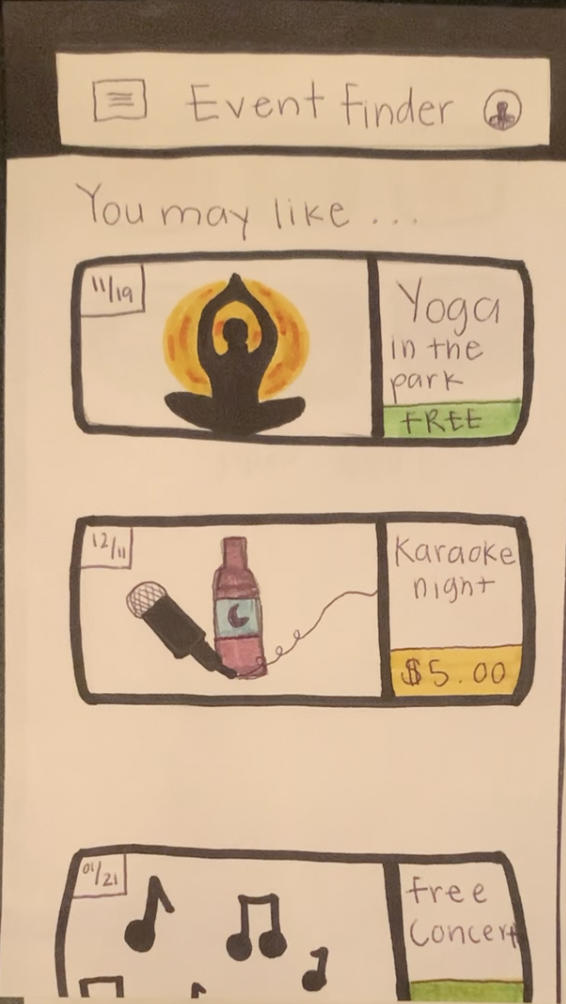 Event Finder
You may like ...
11/19
Yoga
in the
park
FREE
12/11
Karaoke
night
$5.00
01/21
Free
Concert